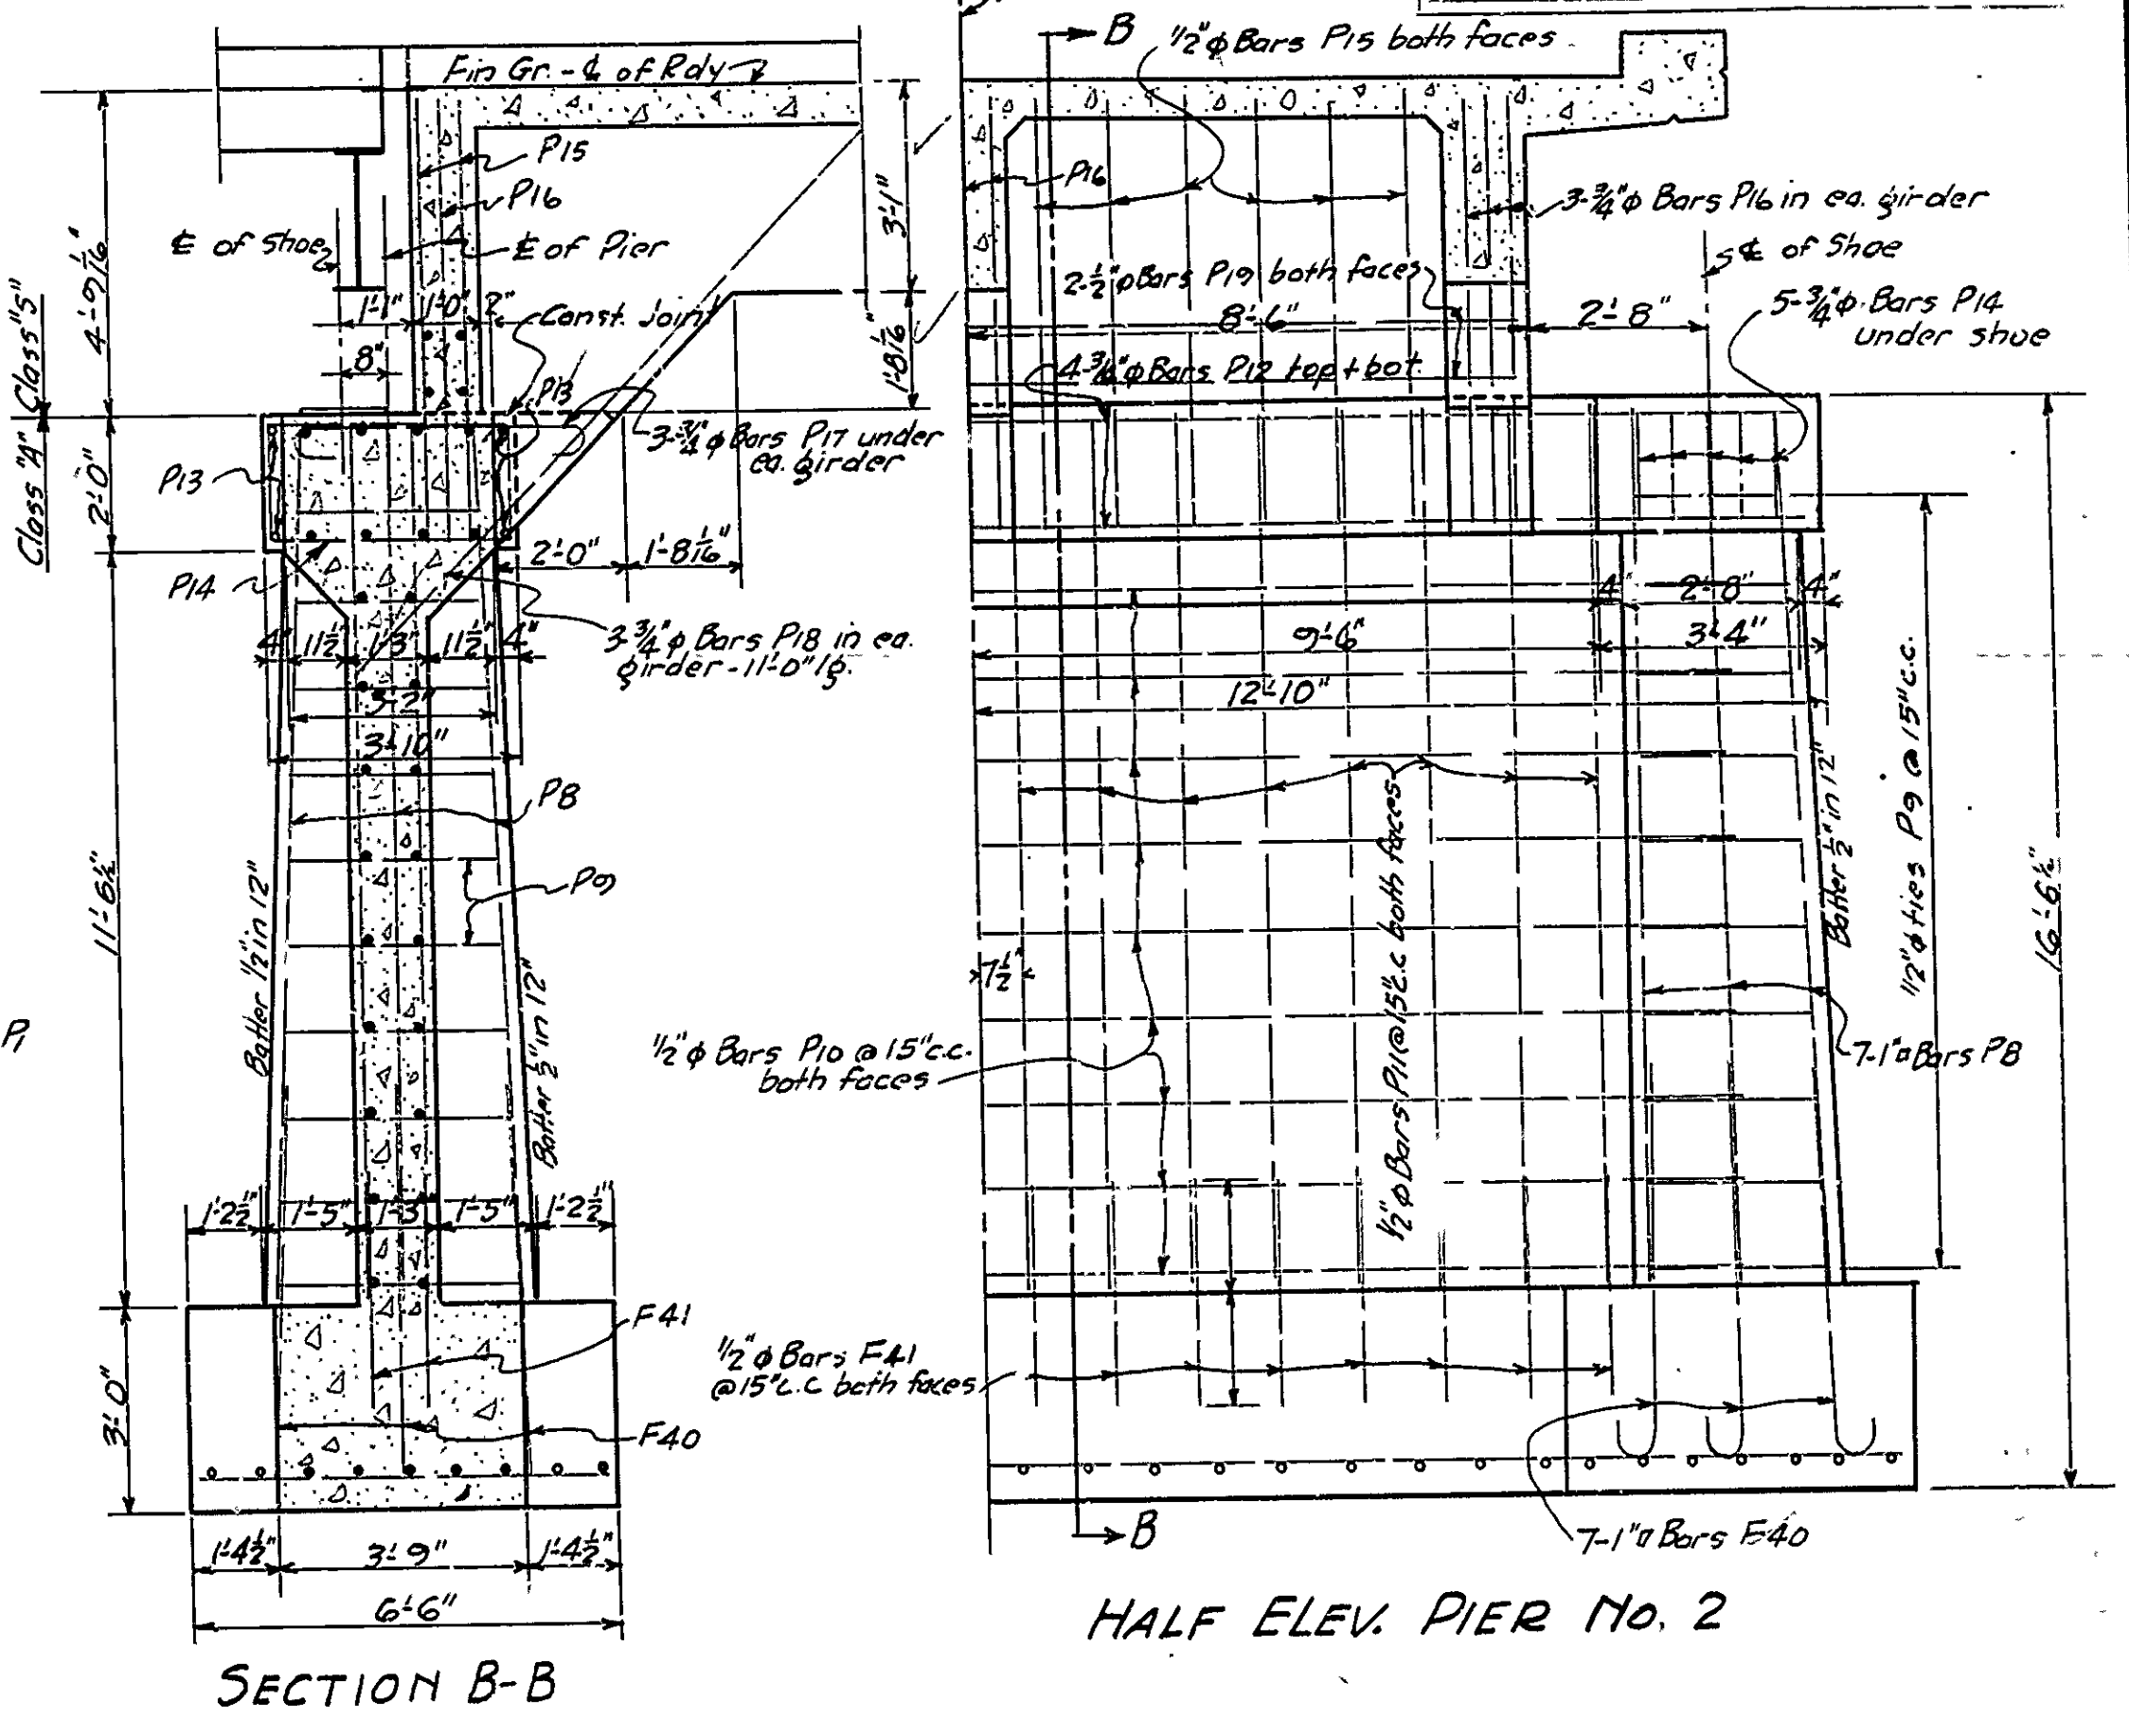 Fin Gr. - ℄ of Rdy
4'-9 1/16"
Class "S"
Class "A"
2'-0"
11'-6½"
3'-0"
P15
P16
℄ of Shoe
℄ of Pier
1'-1"
1'-0"
2"
8"
Const. Joint
P13
3'-1"
1'-8 1/16"
3-¾"φ Bars P17 under
ea. girder
P13
P14
2'-0"
1'-8 1/16"
4"
11½"
1'-3"
11½"
4"
3-¾"φ Bars P18 in ea.
girder - 11'-0" lg.
3'-2"
3'-10"
P8
P9
Batter ½" in 12"
Batter ½" in 12"
P1
1'-2½"
1'-5"
1'-3"
1'-5"
1'-2½"
F41
F40
1'-4½"
3'-9"
1'-4½"
6'-6"
SECTION B-B
B
½"φ Bars P15 both faces
P16
3-¾"φ Bars P16 in ea. girder
℄ of Shoe
2-½"φ Bars P19 both faces
8'-6"
2'-8"
5-¾"φ Bars P14
under shoe
4-¾"φ Bars P12 top & bot.
4"
2'-8"
4"
9'-6"
3'-4"
12'-10"
½"φ ties P9 @ 15" c.c.
16'-6½"
Batter ½" in 12"
7½"
½"φ Bars P10 @ 15" c.c.
both faces
½"φ Bars P11 @ 15" c.c both faces
7-1"□ Bars P8
½"φ Bars F41
@ 15" c.c both faces
7-1"□ Bars F40
B
HALF ELEV. PIER No. 2